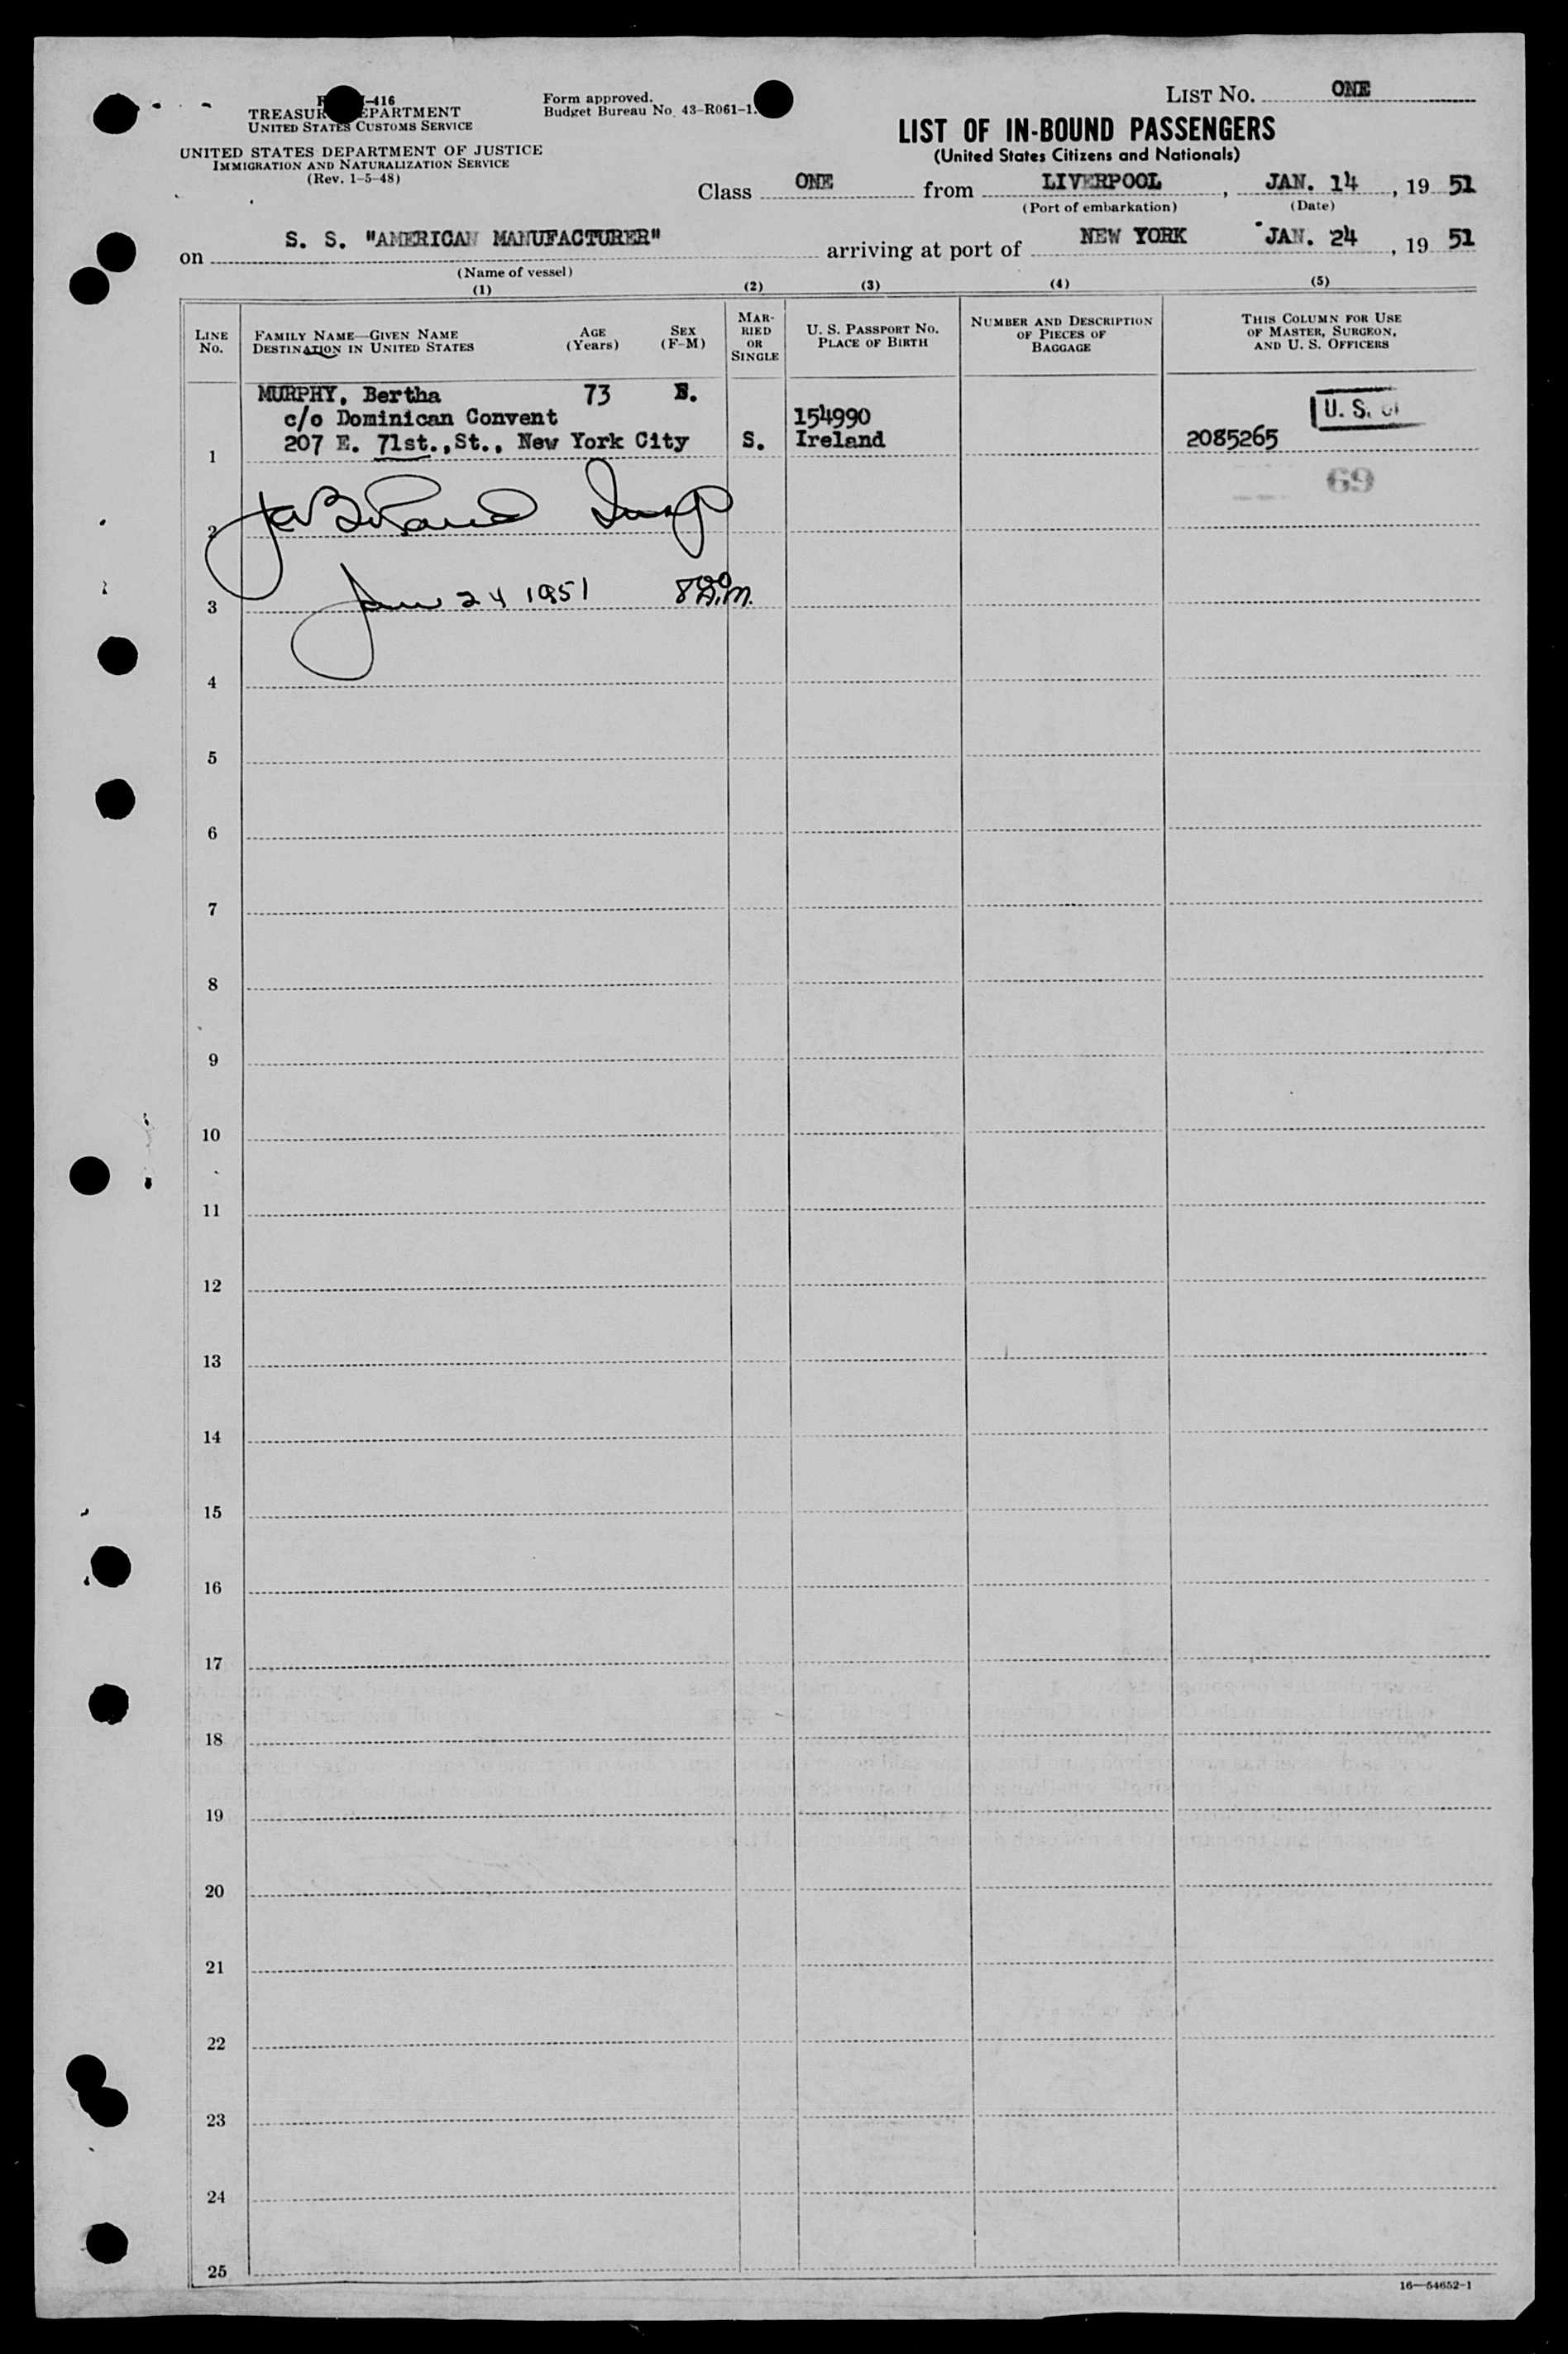 LIST NO. ONE
-416
TREASUR EPARTMENT
UNITED STATES CUSTOMS SERVICE
Form approved.
Budget Bureau No. 43-R061-1.
UNITED STATES DEPARTMENT OF JUSTICE
IMMIGRATION AND NATURALIZATION SERVICE
(Rev. 1-5-48)
LIST OF IN-BOUND PASSENGERS
(United States Citizens and Nationals)
Class ONE from LIVERPOOL, JAN. 14, 19 51
(Port of embarkation) (Date)
on S. S. "AMERICAN MANUFACTURER" arriving at port of NEW YORK JAN. 24, 19 51
(Name of vessel)
(1) (2) (3) (4) (5)
LINE No.
FAMILY NAME—GIVEN NAME
DESTINATION IN UNITED STATES
AGE
(Years)
SEX
(F-M)
MAR-
RIED
OR
SINGLE
U. S. PASSPORT NO.
PLACE OF BIRTH
NUMBER AND DESCRIPTION
OF PIECES OF
BAGGAGE
THIS COLUMN FOR USE
OF MASTER, SURGEON,
AND U. S. OFFICERS
MURPHY, Bertha 73
c/o Dominican Convent 154990 U. S.
1 207 E. 71st.,St., New York City S. Ireland 2085265
69
2
3 Jan 24 1951
4
5
6
7
8
9
10
11
12
13
14
15
16
17
18
19
20
21
22
23
24
25
16—54652-1